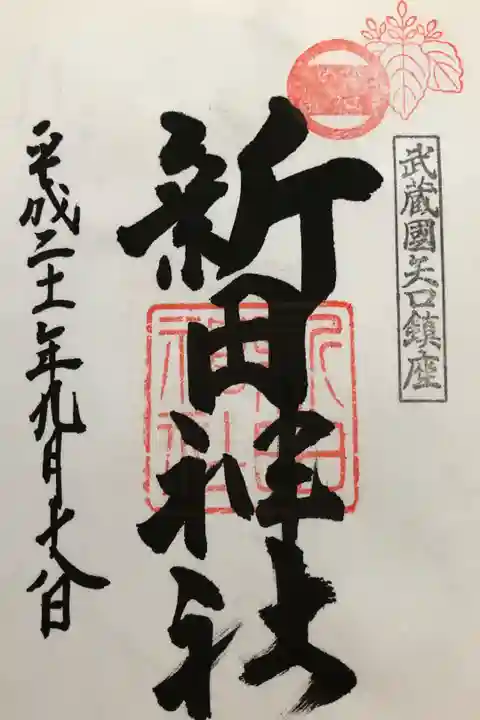 武蔵國矢口鎮座
新田神社
平成二十一年九月十八日